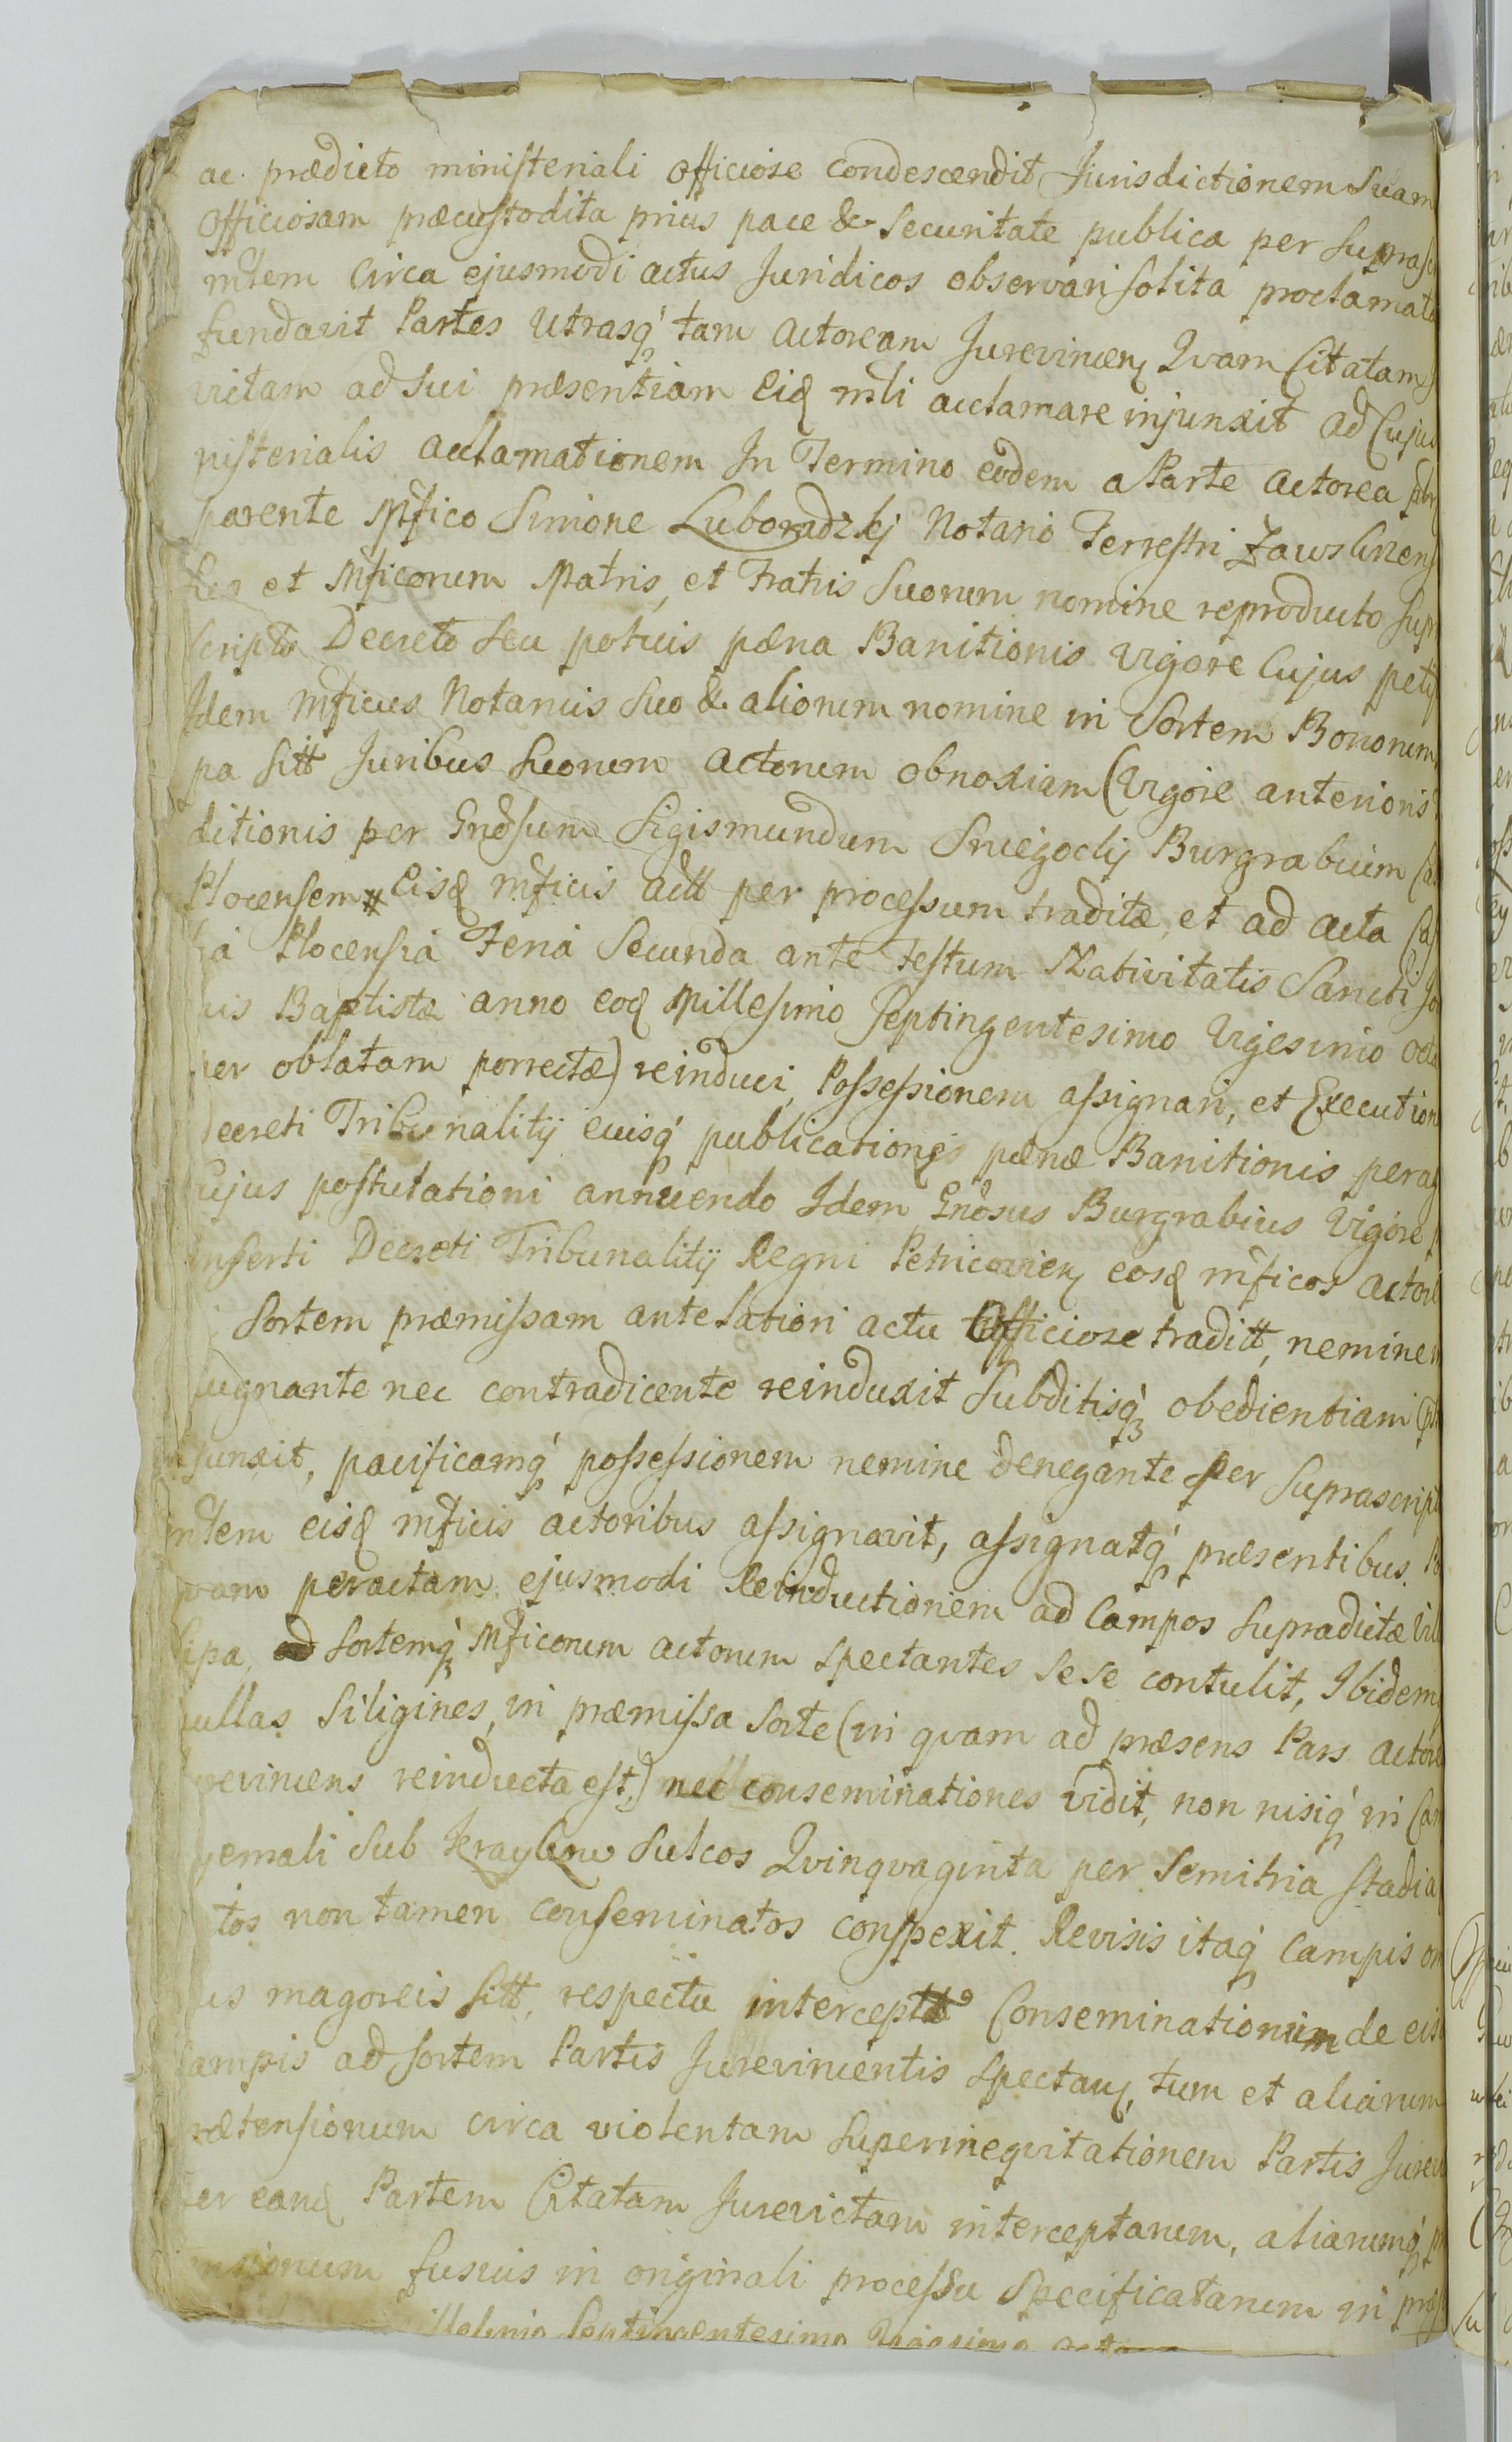 ac prædicto ministeriali officiose condescendit Jurisdictionem Suam
Officiosam præcustodita prius pace & Securitate publica per Supras
mtem Circa ejusmodi actus Juridicos observari solita proclamata
fundavit Partes Utrasq tam Actoream Jurevincen Qvam Citatam
victam ad Sui præsentiam Eid mli acclamare injunxit ad Cujus
nisterialis acclamationem In Termino eodem a Parte Actorea
parente Mfico Simone Luboradzkj Notario Terrestri Zawskrzen
et Mficorum Matris, et Fratris Suorum nomine reproducto Sup
scripto Decreto seu potius pæna Banitionis vigore Cujus petÿ
Idem Mficus Notarius Suo & aliorum nomine in Sortem Bonorum
pa sitt Juribus Suorum Actorum obnoxiam (Vigore anterioris
ditionis per Gnosum Sigismundum Sniegocki Burgrabium Ca
Plocensem Eisd mficis actt per processum traditæ, et ad acta Cas
ia Plocensia Feria Secunda ante Festum Nativitatis Sancti Jo
nis Baptistæ anno eod Millesimo Septingentesimo Vigesimo octa
per oblatam porrectæ) reinduci, Possessionem assignari, et Execution
Decreti Tribunalitÿ euisq publicationis pænæ Banitionis perag
Cujus postulationi annuendo Idem Gnosus Burgrabius Vigore
Inserti Decreti Tribunalitÿ Regni Petricovien eosd mficos actore
Sortem præmissam antelatiori actu Officiose traditt, nemine
pugnante nec contradicente reinduxit Subditisq obedientiam
junxit, pacificamq possessionem nemine denegante per Suprascript
mtem eisd mficis actoribus assignavit, assignatq præsentibus. Po
qvam peractam ejusmodi Reinductionem ad Campos Supradictæ Vil
Lipa, ad Sortemq Mficorum actorum spectantes sese contulit, Ibidem
nullas Siligines, in præmissa Sorte (in qvam ad præsens Pars actore
revincens reinducta est) nec conseminationes vidit, non nisiq in Cam
yemali Sub Sulcos Qvinqvaginta per Semitria Stadia
tos non tamen conseminatos conspexit. Revisis itaq Campis
us magoreis sitt, respectu Conseminationum de eis
Campis ad Sortem Partis Jurevincentis Spectan, tum et aliarum
prætensionum circa violentam Superineqvitationem Partis Jurev
per eand Partem Citatam Jurevictam interceptarum, aliarumq
nsionum fusius in originali processu Specificatarum in præ
illesimo Septingentesimo Vigesimo octavo